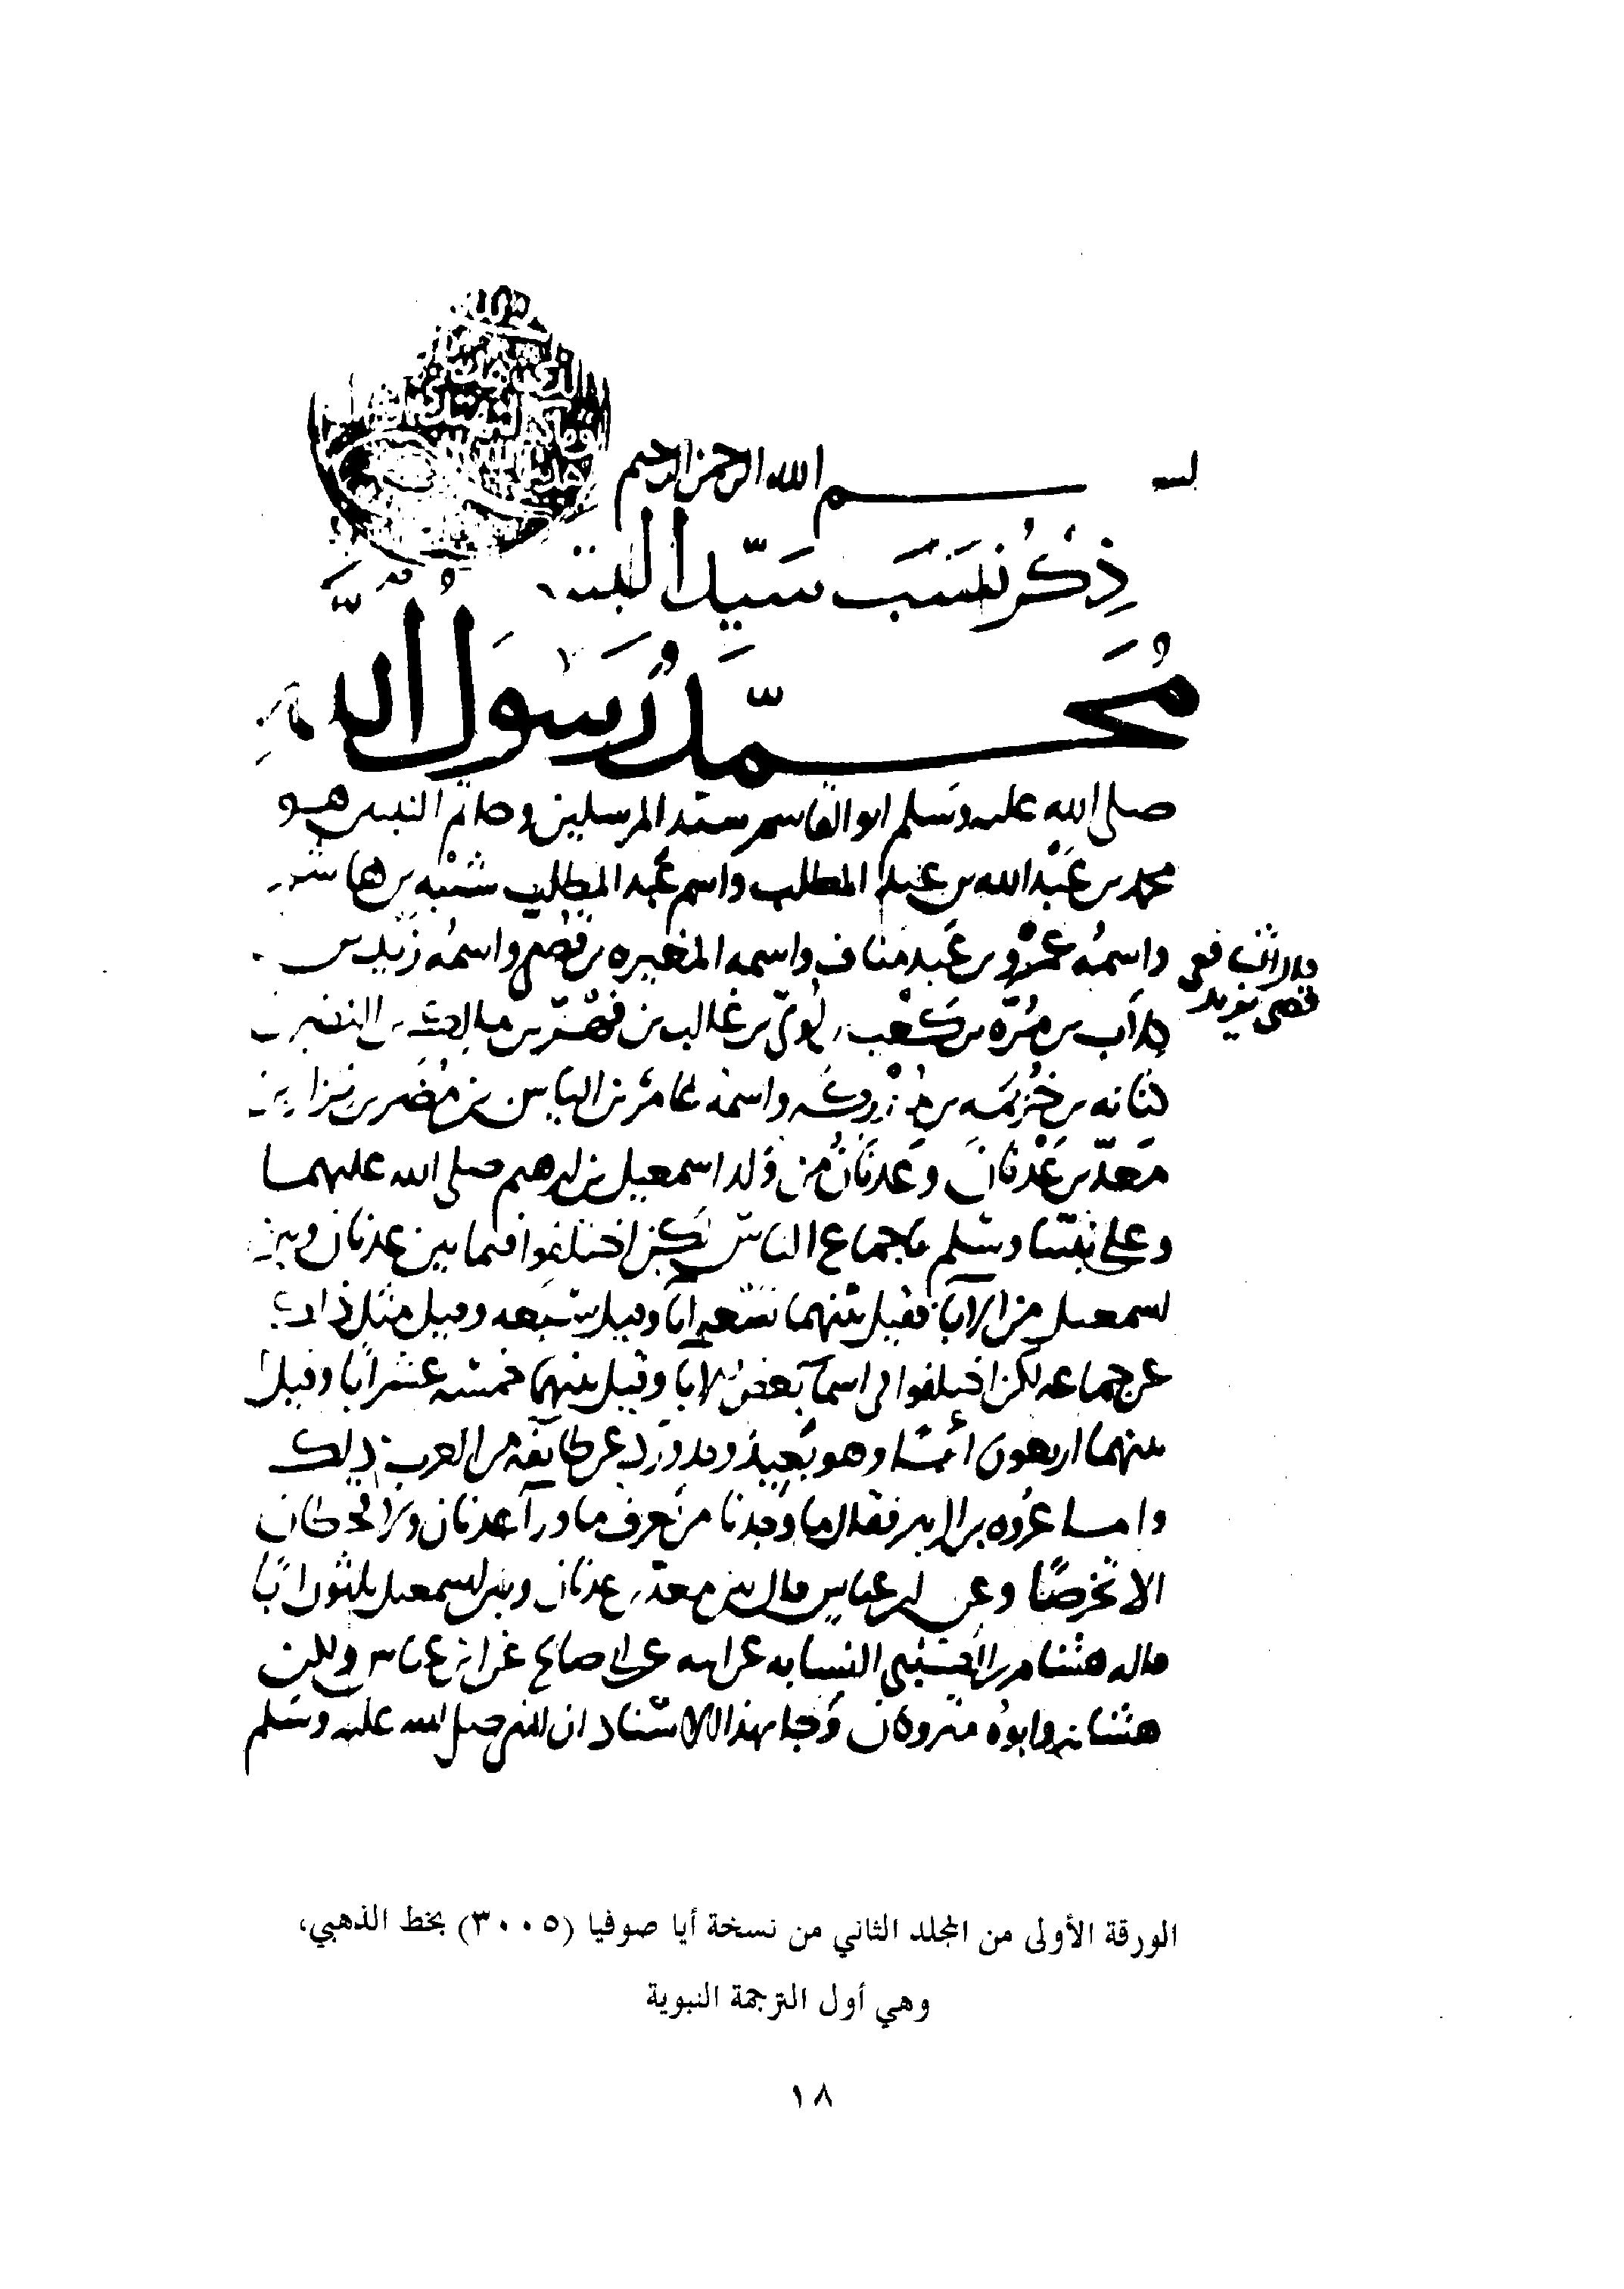 بسم الله الرحمن الرحيم
ذِكْر نَسَب سَيِّد البشر
مُحَمَّدٌ رَسُولُ اللَّه
صلى الله عليه وسلم ابو القاسم سيد المرسلين وخاتم النبيين هو
محمد بن عَبْد الله بن عبد المطلب واسم عبد المطلب شَيْبه بن هاشم
واسمُه عَمْرو بن عَبد مناف واسمه المغيره بن قُصَي واسمُه زَيد بن
قال الشافعي
قصي يزيد
كلاب بن مُرَّه بن كَعْب بن لُؤيّ بن غالب بن فِهْر بن مالك بن النضر بن
كنانه بن خُزيمَه بن مُدْرِكَه واسمه عامر بن الياس بن مُضَر بن نِزار بن
مَعَدّ بن عَدْنان وعَدنانُ من وَلد اسمعيل بن ابرهيم صلى الله عليهما
وعلى نبيّنا وسلم باجماع الناس لكن اختلفوا فيما بين عدنان وبين
اسمعيل من الآباء فقيل بينهما تسعه آبا وقيل سَبعه وقيل مثل ذلك
عن جماعه لكن اختلفوا في اسماء بعض الابا وقيل بينهما خمسه عشر ابا وقيل
بينهما اربعون أبًا وهو بَعِيد وقد وَرَد عن طايفه من العرب ذلك
واما عُروه بن الزبير فقال ما وَجدنا من يَعرف ما ورآ عدنان ولا قحطان
الا تخرصًا وعن ابن عباس قال بين معدّ بن عدنان وبين اسمعيل ثلثون ابًا
قاله هشام بن الكلبي النسابه عن ابيه عن ابي صالح عن ابن عباس ولكن
هشام وابوه متروكان وجا بهذا الاسناد ان النبي صلى الله عليه وسلم
الورقة الأولى من المجلد الثاني من نسخة أيا صوفيا (٣٠٠٥) بخط الذهبي،
وهي أول الترجمة النبوية
١٨